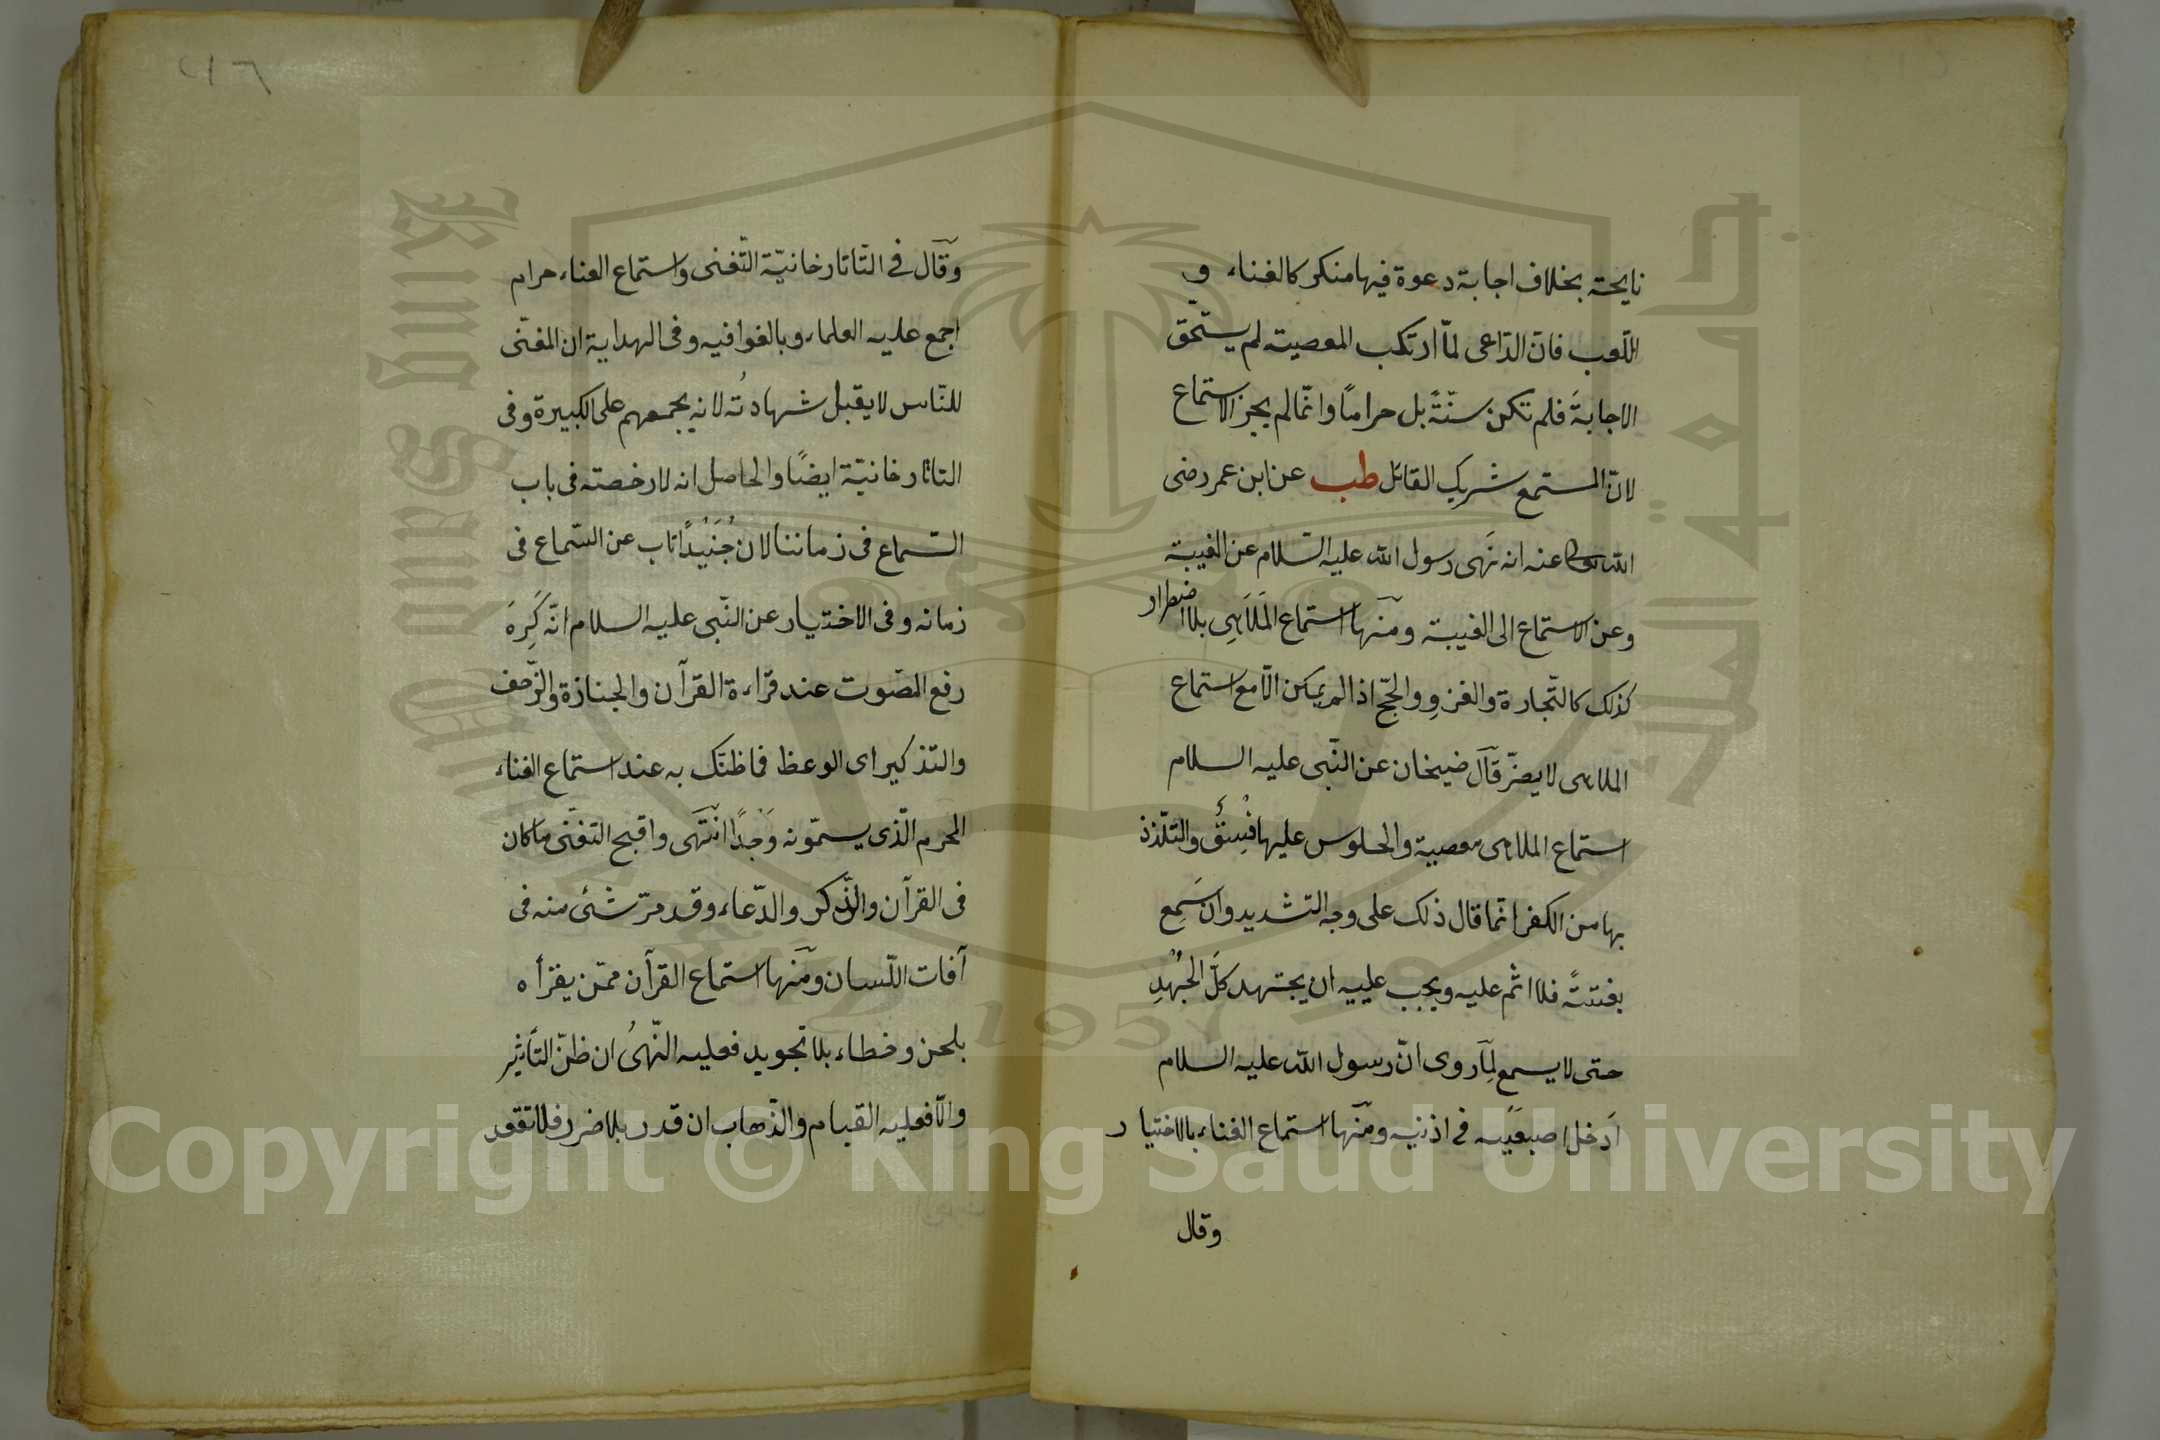 نايحته بخلاف اجابة دعوة فيها منكر كالغناء و
اللّعب فانّ الدّاعى لمّا ارتكب المعصيته لم يستّحق
الاجابةَ فلم تكن سنّتةً بل حرامًا وانّما لم يجز الاستماع
لانّ المستمع شريك القائل طب عن ابن عمر رضى
الله عنه انه نَهى رسول الله عليه السّلام عن الغيبة
وعن الاستماع الى الغيبة ومنها استماع المَلَاهِى بلا اضطرار
كذلك كالتّجارة والغزوِ والحجّ اذا لم يمكن الّا مع استماع
الملاهى لا يضرّ قال ضيخان عن النّبى عليه السلام
استماع الملاهى معصية والجلوس عليها فِسْقٌ والتلّذذ
بها من الكفر انّما قال ذلك على وجه التشديد وان سَمِع
بغتتةً فلا اثم عليه ويجب علييه ان يجتهد كلَّ الجُهْدِ
حتى لا يسمع لِمَا روى انّ رسول الله عليه السلام
اَدخل اصبعَيه فى اذنيه ومنها استماع الغناء بالاختيار
وقال
٢١٦
وقال فى التّاتارخانيّة التّغنى واستماع الغناء حرام
اجمع عليه العلماء وبالغوا فيه وفى الهداية ان المغنّى
للنّاس لا يقبل شهادتُه لانه يجمعهم على الكبيرة وفى
التاتارخانيّة ايضًا والحاصل انه لا رخصته فى باب
السّماع فى زماننا لان جُنَيْدًا تاب عن السّماع فى
زمانه وفى الاختيار عن النّبى عليه السلام انّه كَرِهَ
رفع الصّوت عند قراءة القرآن والجنازة والزّحف
والتذكير اى الوعظ فما ظنّك به عند استماع الغناء
المحرم الّذى يسمّونه وَجْدًا انتهى واقبح التغنّى ما كان
فى القرآن والذّكر والدّعاء وقد مرّ شئ منه فى
آفات اللّسان ومنها استماع القرآن ممّن يقرأه
بلحن وخطاء بلا تجويد فعليه النّهىُ ان ظنّ التأثير
والّا فعليه القيام والذّهاب ان قدر بلا ضرر فلا تقعد
King Saud University
جامعة الملك سعود
1957
Copyright © King Saud University